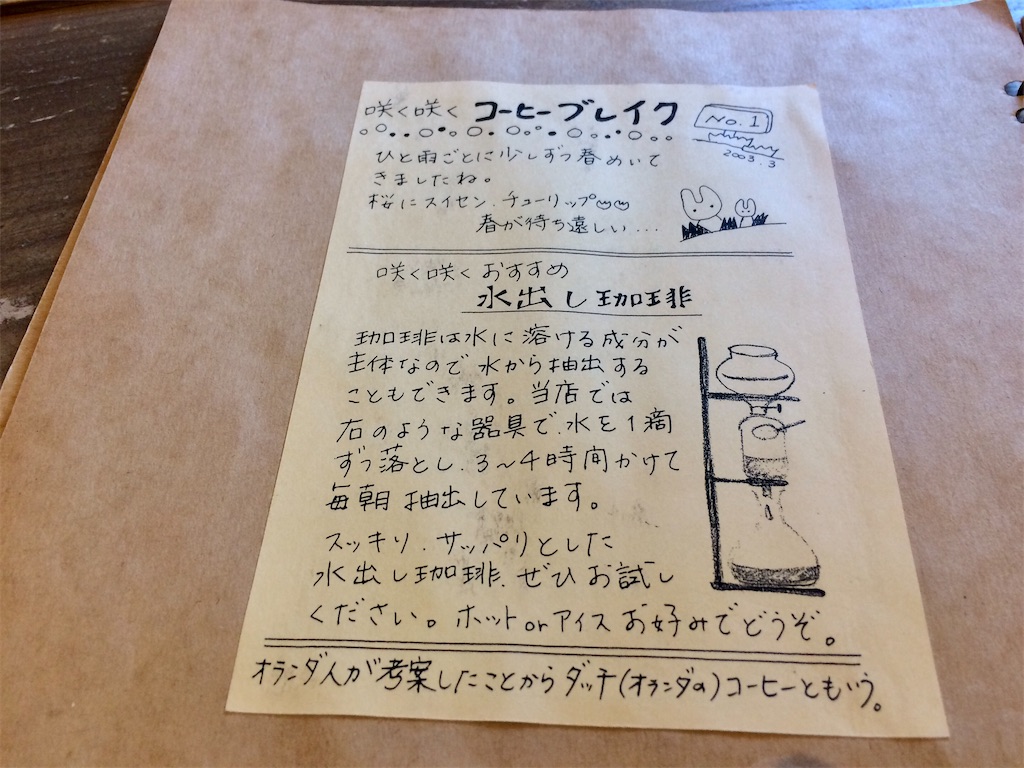 咲く咲く コーヒーブレイク
No.1
2003.3
ひと雨ごとに少しずつ春めいて
きましたね。
桜にスイセン、チューリップ
春が待ち遠しい...
咲く咲くおすすめ
水出し珈琲
珈琲は水に溶ける成分が
主体なので水から抽出する
こともできます。当店では
右のような器具で、水を1滴
ずつ落とし、3〜4時間かけて
毎朝抽出しています。
スッキリ、サッパリとした
水出し珈琲、ぜひお試し
ください。ホットorアイスお好みでどうぞ。
オランダ人が考案したことからダッチ(オランダの)コーヒーともいう。